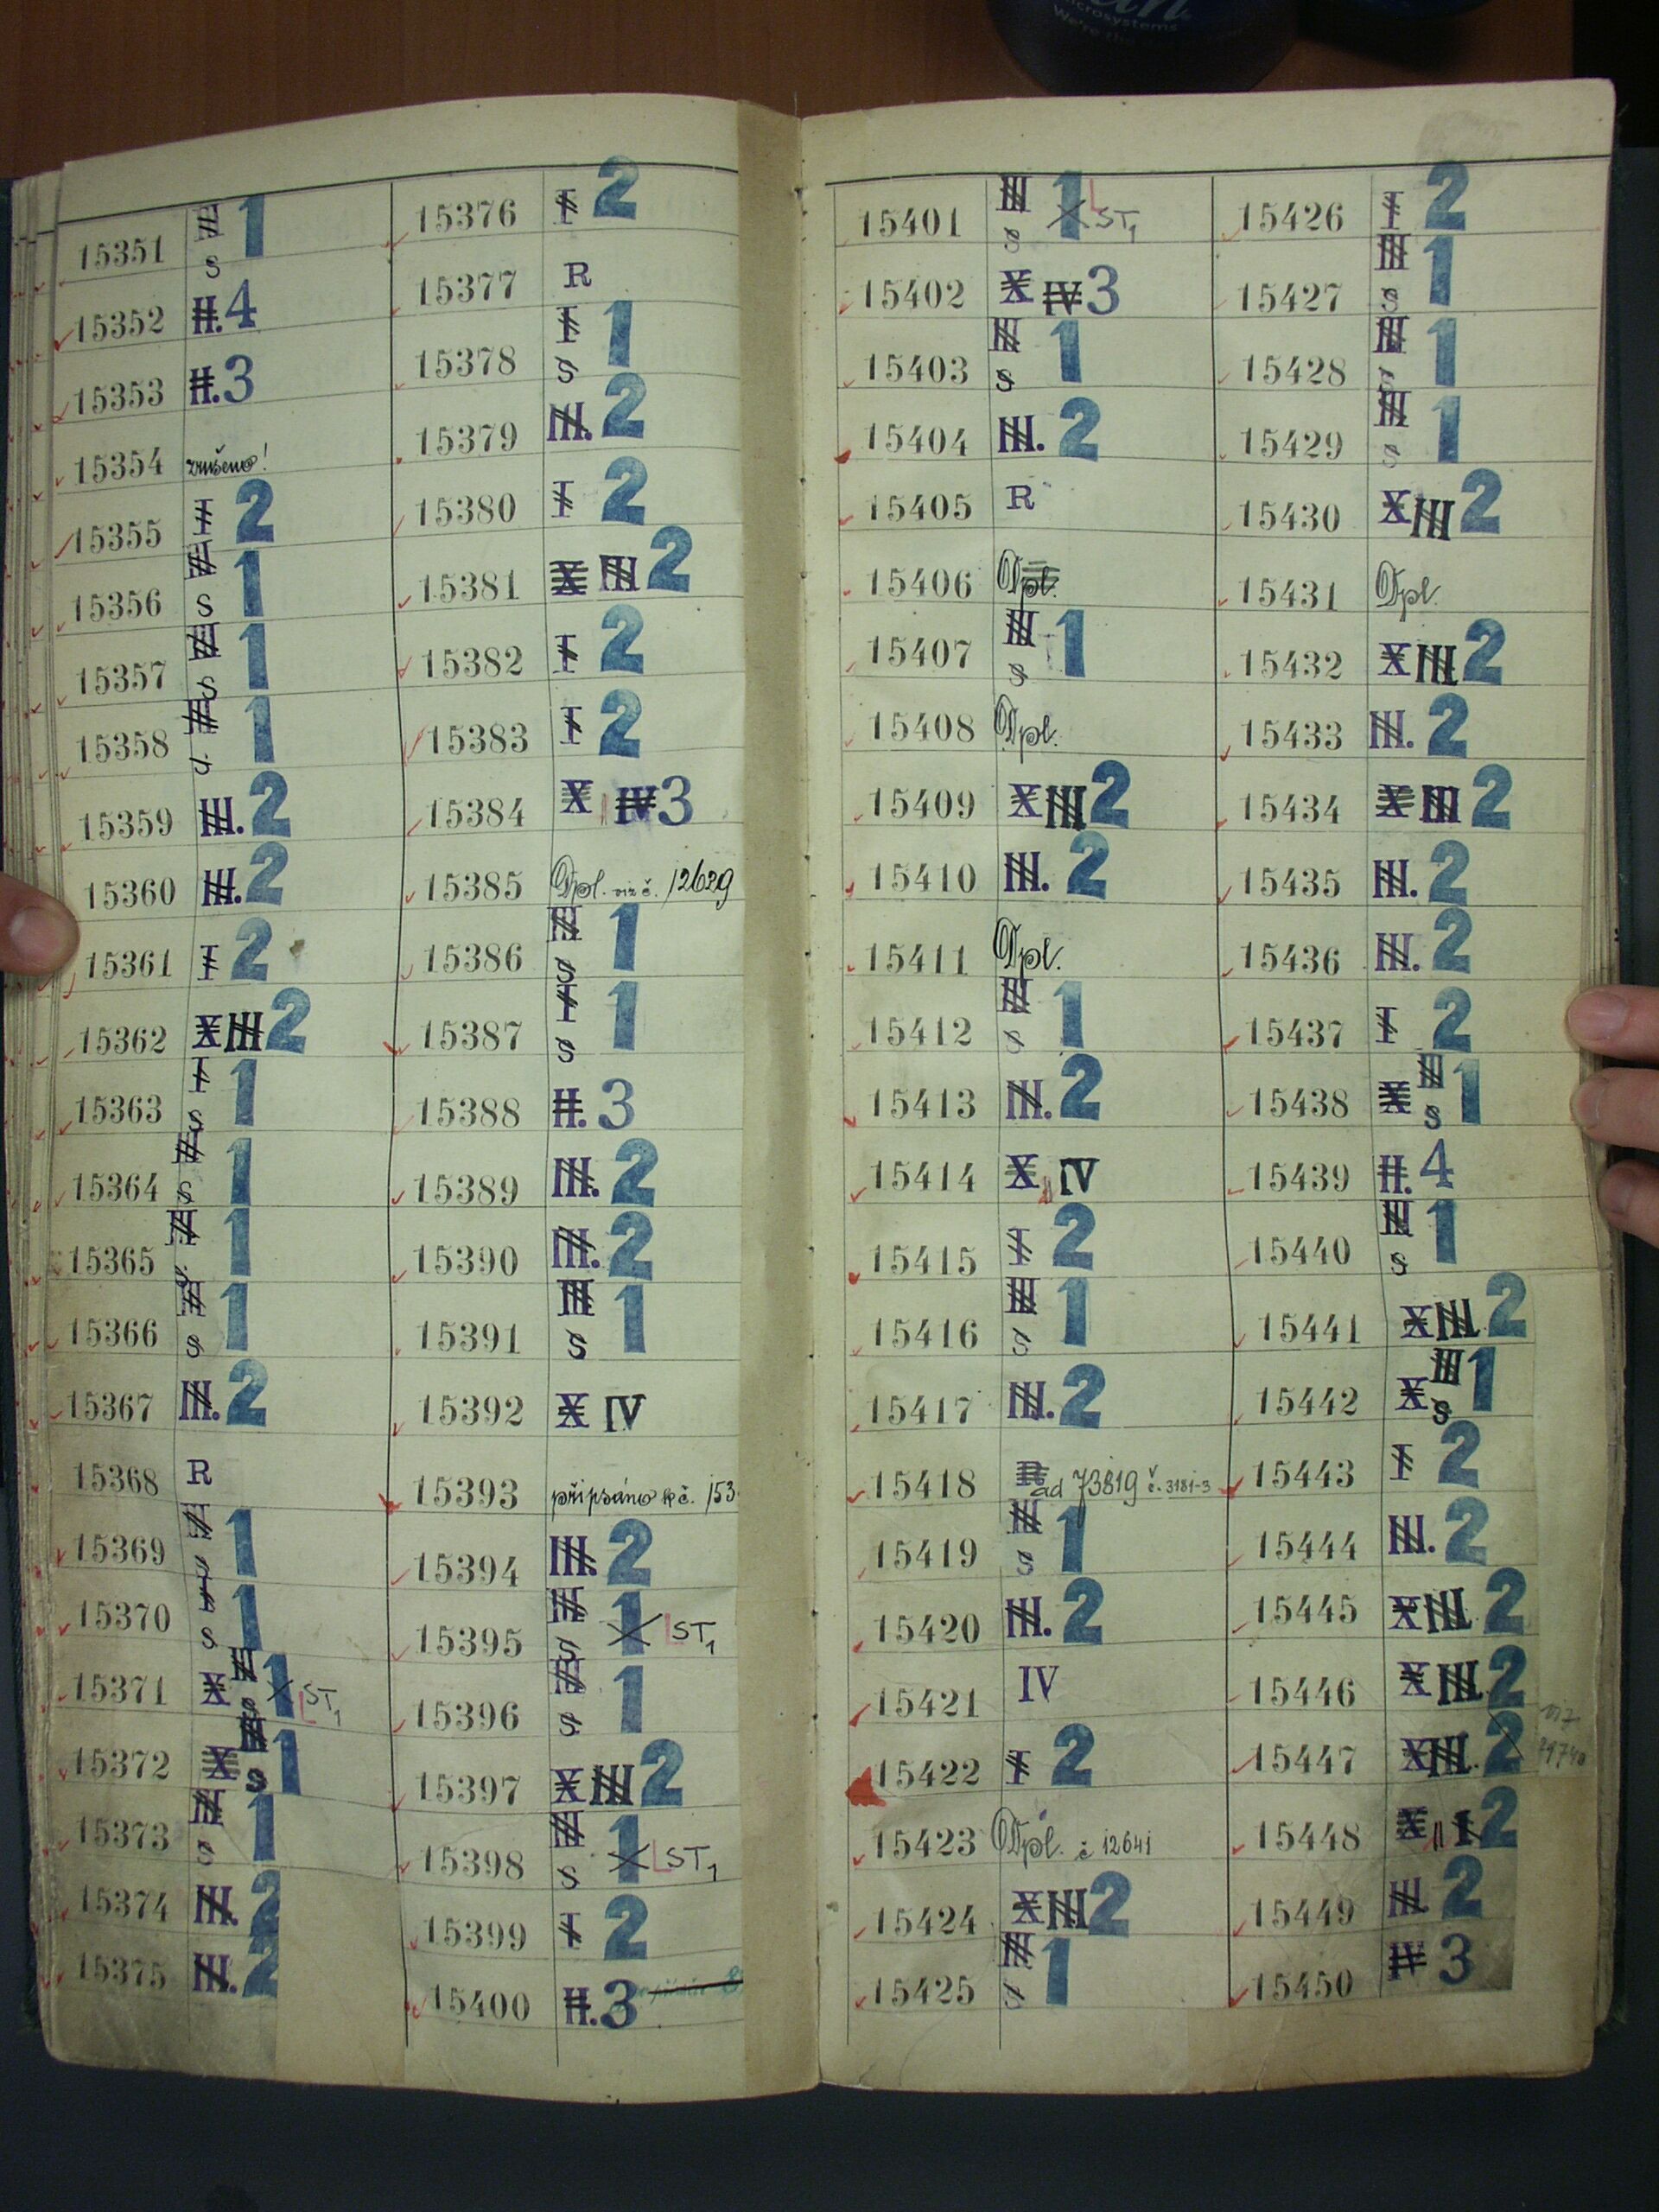 Microsystems
We're the
15351 III 1
S
15352 II. 4
15353 II. 3
15354 zrušeno!
15355 I 2
15356 III 1
S
15357 III 1
S
15358 III 1
S
15359 III. 2
15360 III. 2
15361 I 2
15362 X III 2
15363 I 1
S
15364 III 1
S
15365 III 1
S
15366 III 1
S
15367 III. 2
15368 R
15369 III 1
S
15370 I 1
S
15371 X III 1 L ST1
S
15372 X III 1
S
15373 III 1
S
15374 III. 2
15375 III. 2
15376 I 2
15377 R
15378 I 1
S
15379 III. 2
15380 I 2
15381 X III 2
15382 I 2
15383 I 2
15384 X IV 3
15385 Dpl. viz č. 12629
15386 III 1
S
15387 I 1
S
15388 II. 3
15389 III. 2
15390 III. 2
15391 III 1
S
15392 X IV
15393 připsáno k č. 153
15394 III. 2
15395 III 1 L ST1
S
15396 III 1
S
15397 X III 2
15398 III 1 L ST1
S
15399 I 2
15400 II. 3
15401 III 1 L ST1
S
15402 X IV 3
15403 III 1
S
15404 III. 2
15405 R
15406 Dpl.
15407 III 1
S
15408 Dpl.
15409 X III 2
15410 III. 2
15411 Dpl.
15412 III 1
S
15413 III. 2
15414 X IV
15415 I 2
15416 III 1
S
15417 III. 2
15418 R ad 73819 č. 3181-3
15419 III 1
S
15420 III. 2
15421 IV
15422 I 2
15423 Dpl. č 12641
15424 X III 2
15425 III 1
S
15426 I 2
15427 III 1
S
15428 III 1
S
15429 III 1
S
15430 X III 2
15431 Dpl.
15432 X III 2
15433 III. 2
15434 X III 2
15435 III. 2
15436 III. 2
15437 I 2
15438 X III 1
S
15439 II. 4
15440 III 1
S
15441 X III. 2
15442 X III 1
S
15443 I 2
15444 III. 2
15445 X III. 2
15446 X III. 2
15447 X III. 2 viz
15448 X I 2
15449 III. 2
15450 IV 3